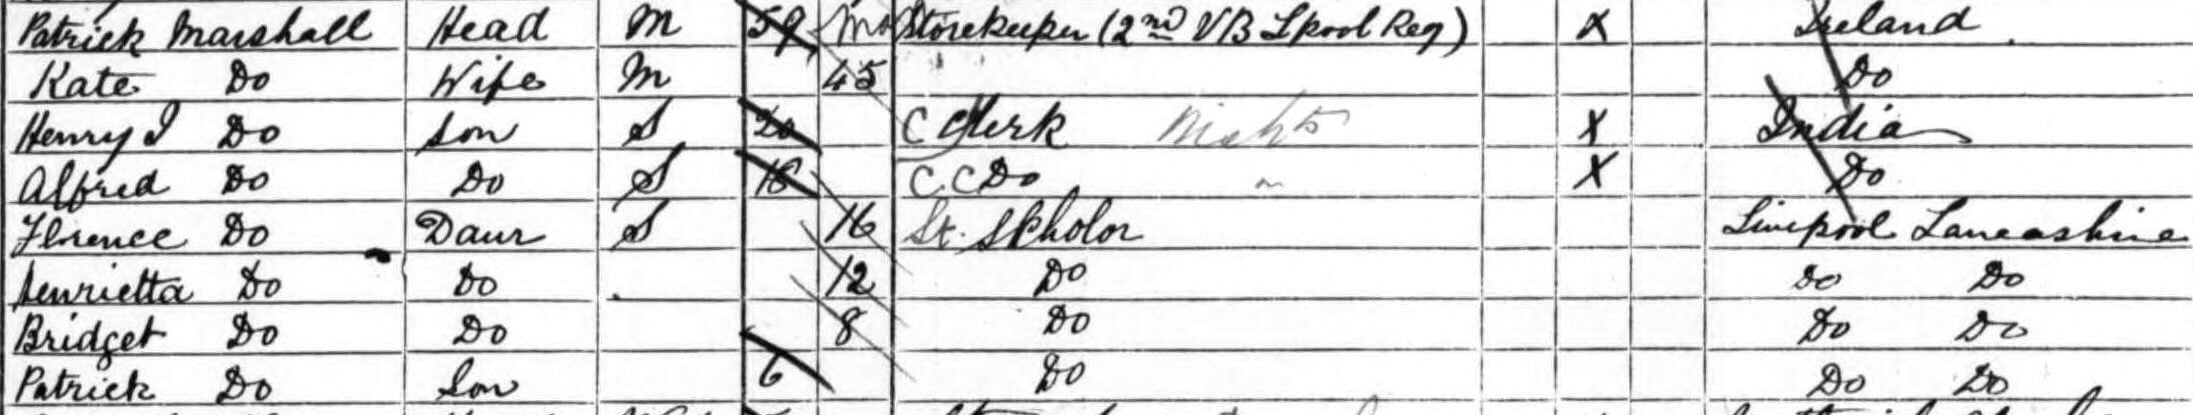 Patrick Marshall Head M 59 Storekeeper (2nd VB Lpool Reg) X Ireland
Kate Do Wife M 45 Do
Henry J Do Son S 20 C Clerk X India
Alfred Do Do S 18 C C Do X Do
Florence Do Daur S 16 St. Scholor Liverpool Lancashire
Henrietta Do Do 12 Do Do Do
Bridget Do Do 8 Do Do Do
Patrick Do Son 6 Do Do Do